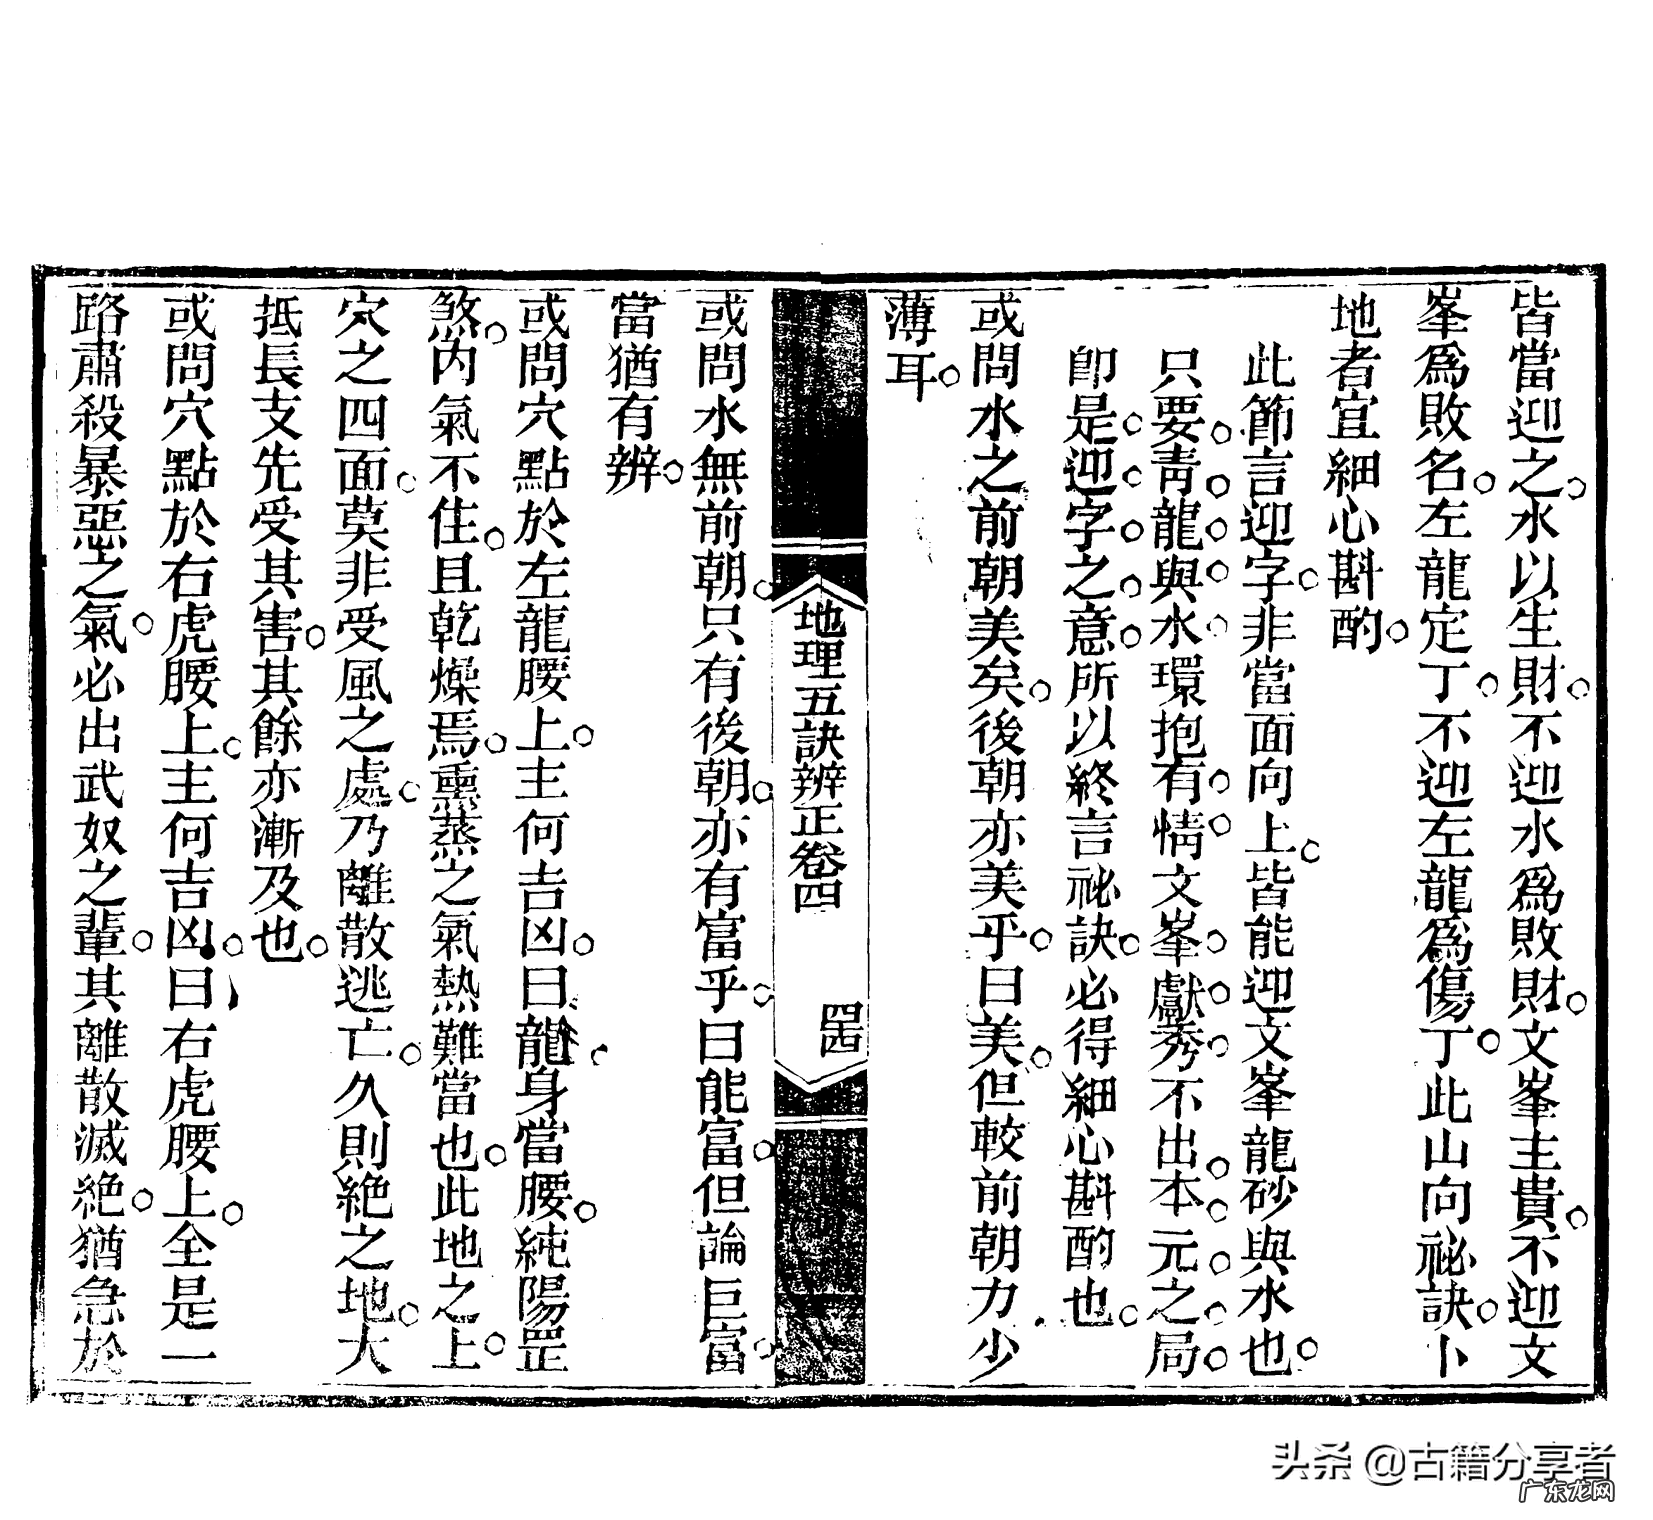 皆當迎之水以生財不迎水爲敗財文峯主貴不迎文
峯爲敗名左龍定丁不迎左龍爲傷丁此山向祕訣卜
地者宜細心斟酌
此節言迎字非當面向上皆能迎文峯龍砂與水也
只要靑龍與水環抱有情文峯獻秀不出本元之局
卽是迎字之意所以終言祕訣必得細心斟酌也
或問水之前朝美矣後朝亦美乎曰美但較前朝力少
薄耳
地理五訣辨正卷四
罒四
或問水無前朝只有後朝亦有富乎曰能富但論巨富
當猶有辨
或問穴點於左龍腰上主何吉凶曰龍身當腰純陽罡
煞內氣不住且乾燥焉熏蒸之氣熱難當也此地之上
穴之四面莫非受風之處乃離散逃亡久則絶之地大
抵長支先受其害其餘亦漸及也
或問穴點於右虎腰上主何吉凶曰右虎腰上全是一
路肅殺暴惡之氣必出武奴之輩其離散滅絶猶急於
头条 @古籍分享者
广东龙网